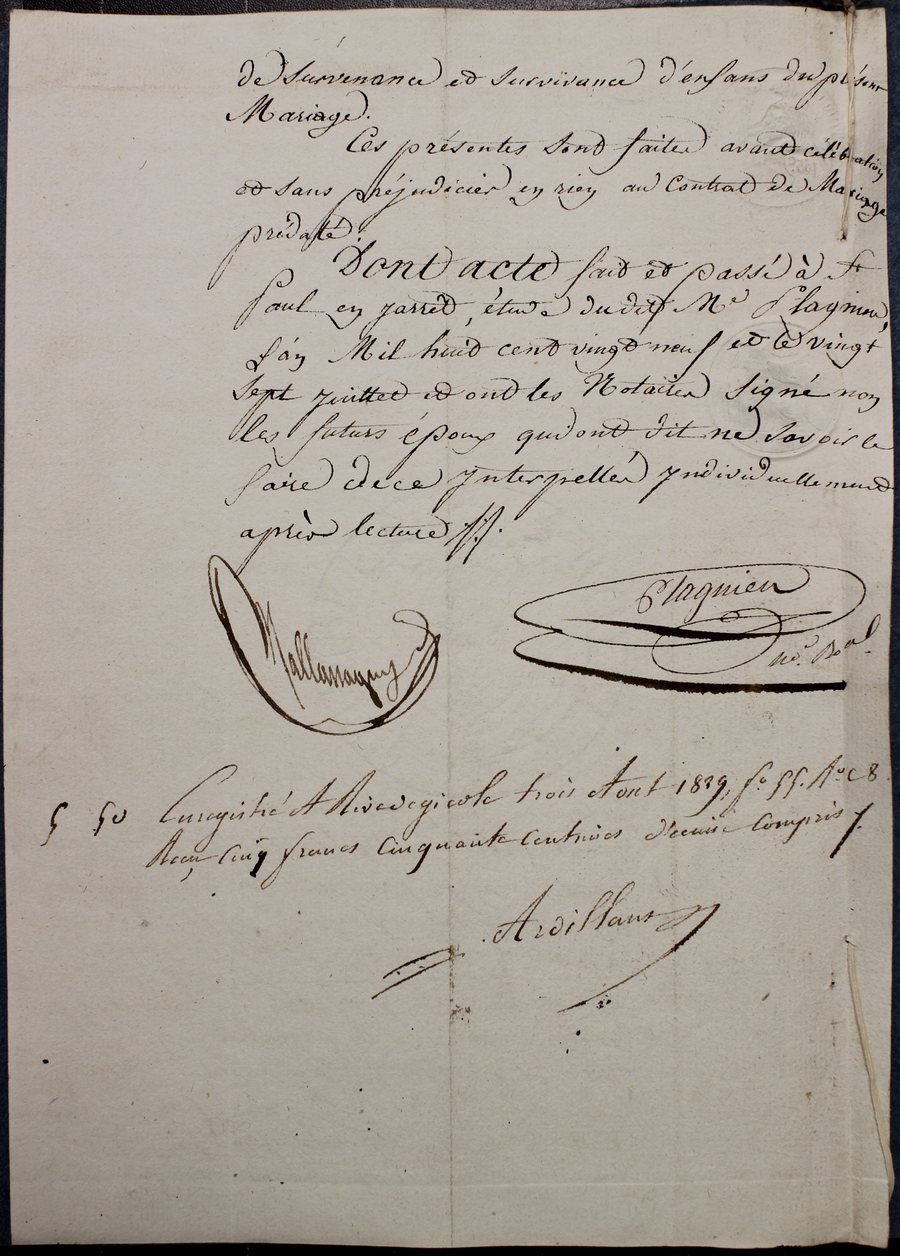 de survenance et survivance d'enfans du présent
Mariage.
Ces présentes sont faites avant célébration
et sans préjudicier en rien au Contrat de Mariage
prédaté.
Dont acte fait et passé à St
Paul en jarret, étude dudit Me Plagnieu,
L'an Mil huit cent vingt neuf et le vingt
Sept juillet et ont les Notaires signé non
les futurs époux qui ont dit ne savoir le
faire de ce Interpellés Individuellement
après lecture
Plagnieu
nre Roal
5 50 Enregistré A Rivedegier le trois Aout 1829, fo 55. Ro C 8.
Reçu Cinq francs Cinquante centimes décime compris
Ardillans